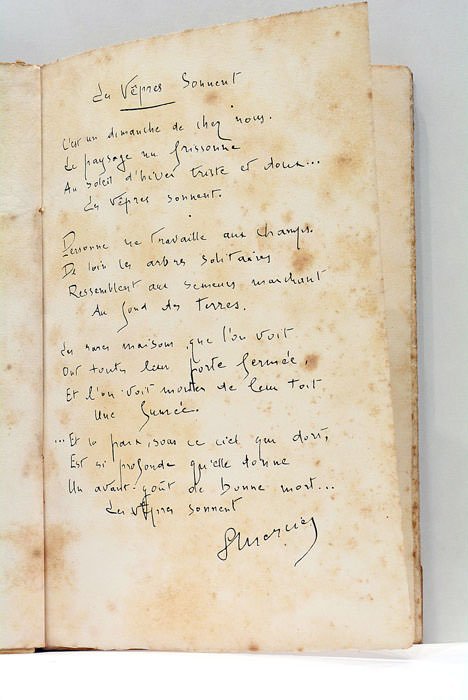 Les Vêpres Sonnent
C'est un dimanche de chez nous.
Le paysage nu frissonne
Au soleil d'hiver triste et doux...
Les vêpres sonnent.
Personne ne travaille aux champs.
De loin les arbres solitaires
Ressemblent aux semeurs marchant
Au fond des terres.
Les rares maisons que l'on voit
Ont toutes leur porte fermée,
Et l'on voit monter de leur toit
Une fumée.
...Et la paix, sous ce ciel qui dort,
Est si profonde qu'elle donne
Un avant-goût de bonne mort...
Les vêpres sonnent